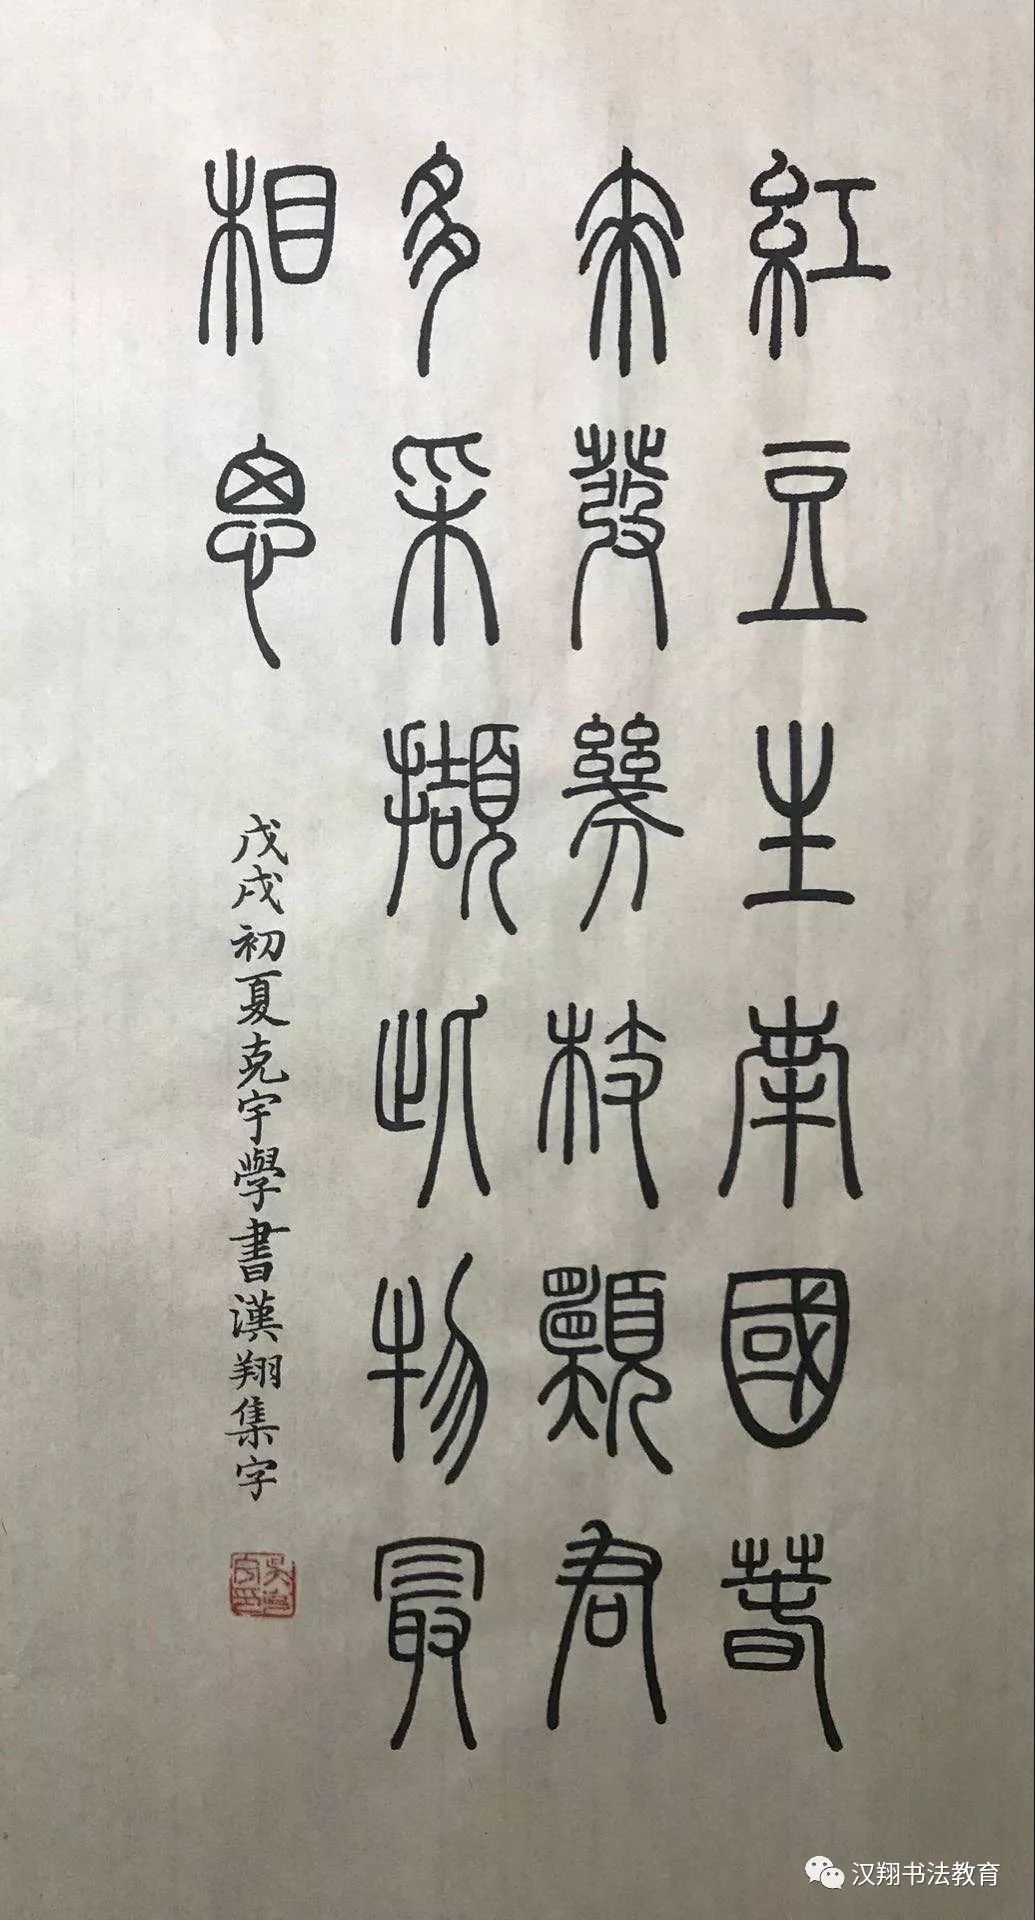 紅豆生南國春
來發幾枝顠君
多采擷此物最
相思
戊戌初夏克宇學書漢翔集字
汉翔书法教育